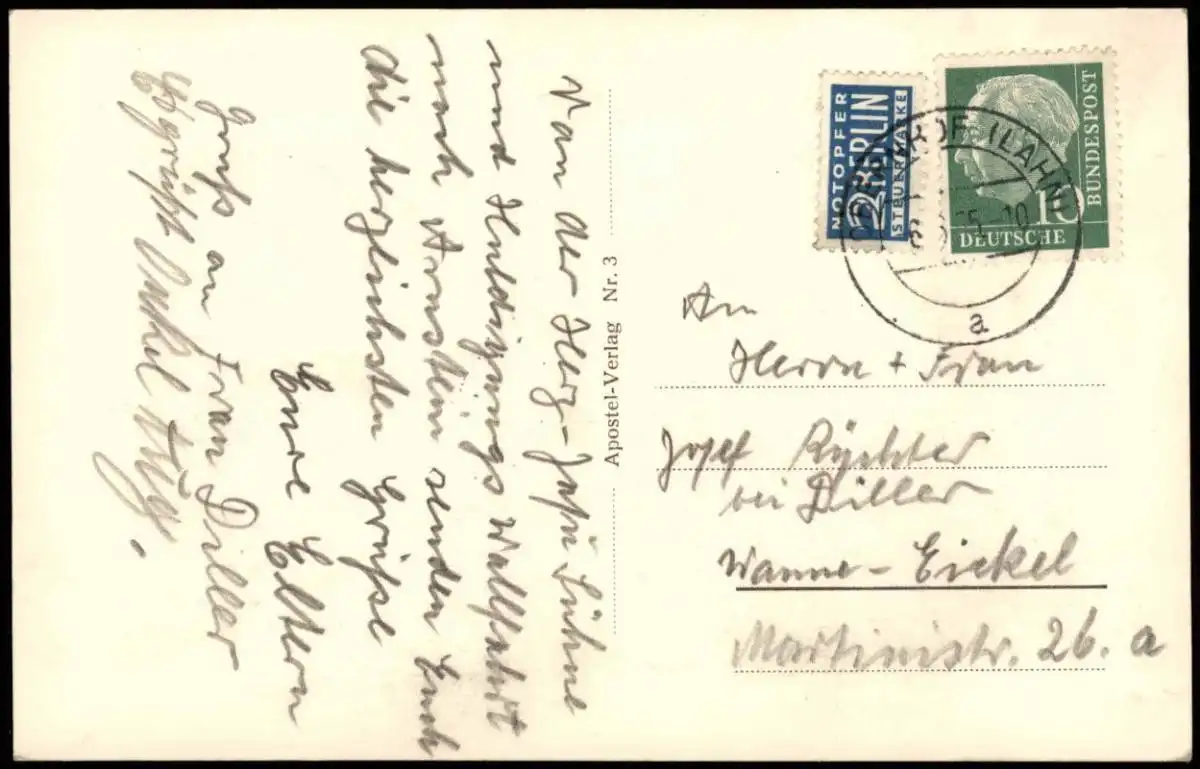 Von der Herz-Jesu Sühne
und Huldigungs Wallfahrt
nach Arnstein senden Euch
die herzlichsten Grüße
Eure Eltern
Gruß an Frau Diller
Es grüßt Onkel
Apostel-Verlag Nr. 3
NOTOPFER
2 BERLIN
STEUERMARKE
10
DEUTSCHE
BUNDESPOST
(LAHN)
a
An
Herrn + Frau
Josef Rychter
bei Diller
Wanne-Eickel
Martinistr. 26. a